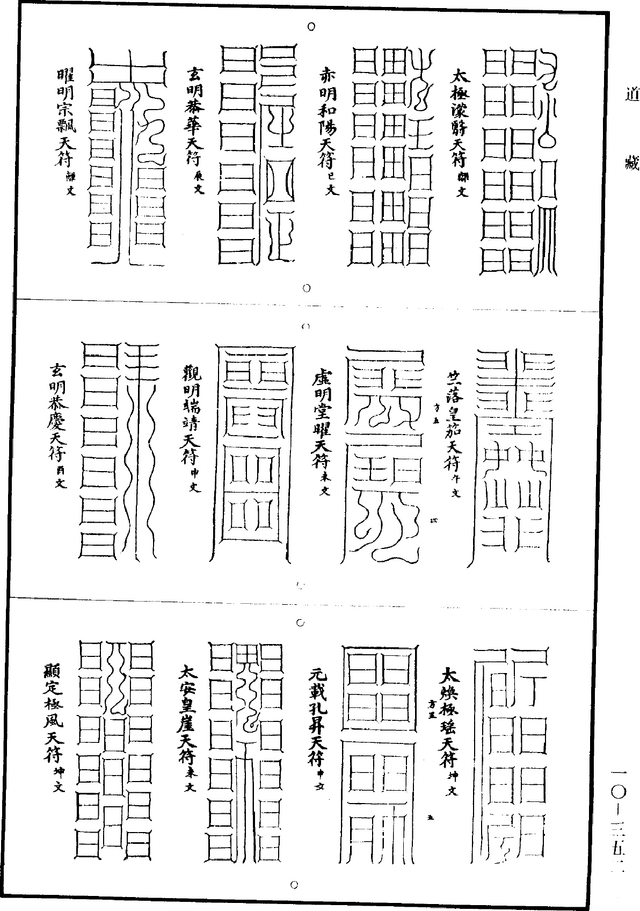 道藏
太極濛翳天符
赤明和陽天符 巳文
玄明恭華天符 辰文
曜明宗飄天符
竺落皇笳天符 午文
虛明堂曜天符 未文
觀明端靖天符 申文
玄明恭慶天符 酉文
太煥極瑤天符 坤文
元載孔昇天符 申文
太安皇崖天符 未文
顯定極風天符 坤文
一〇—三五二